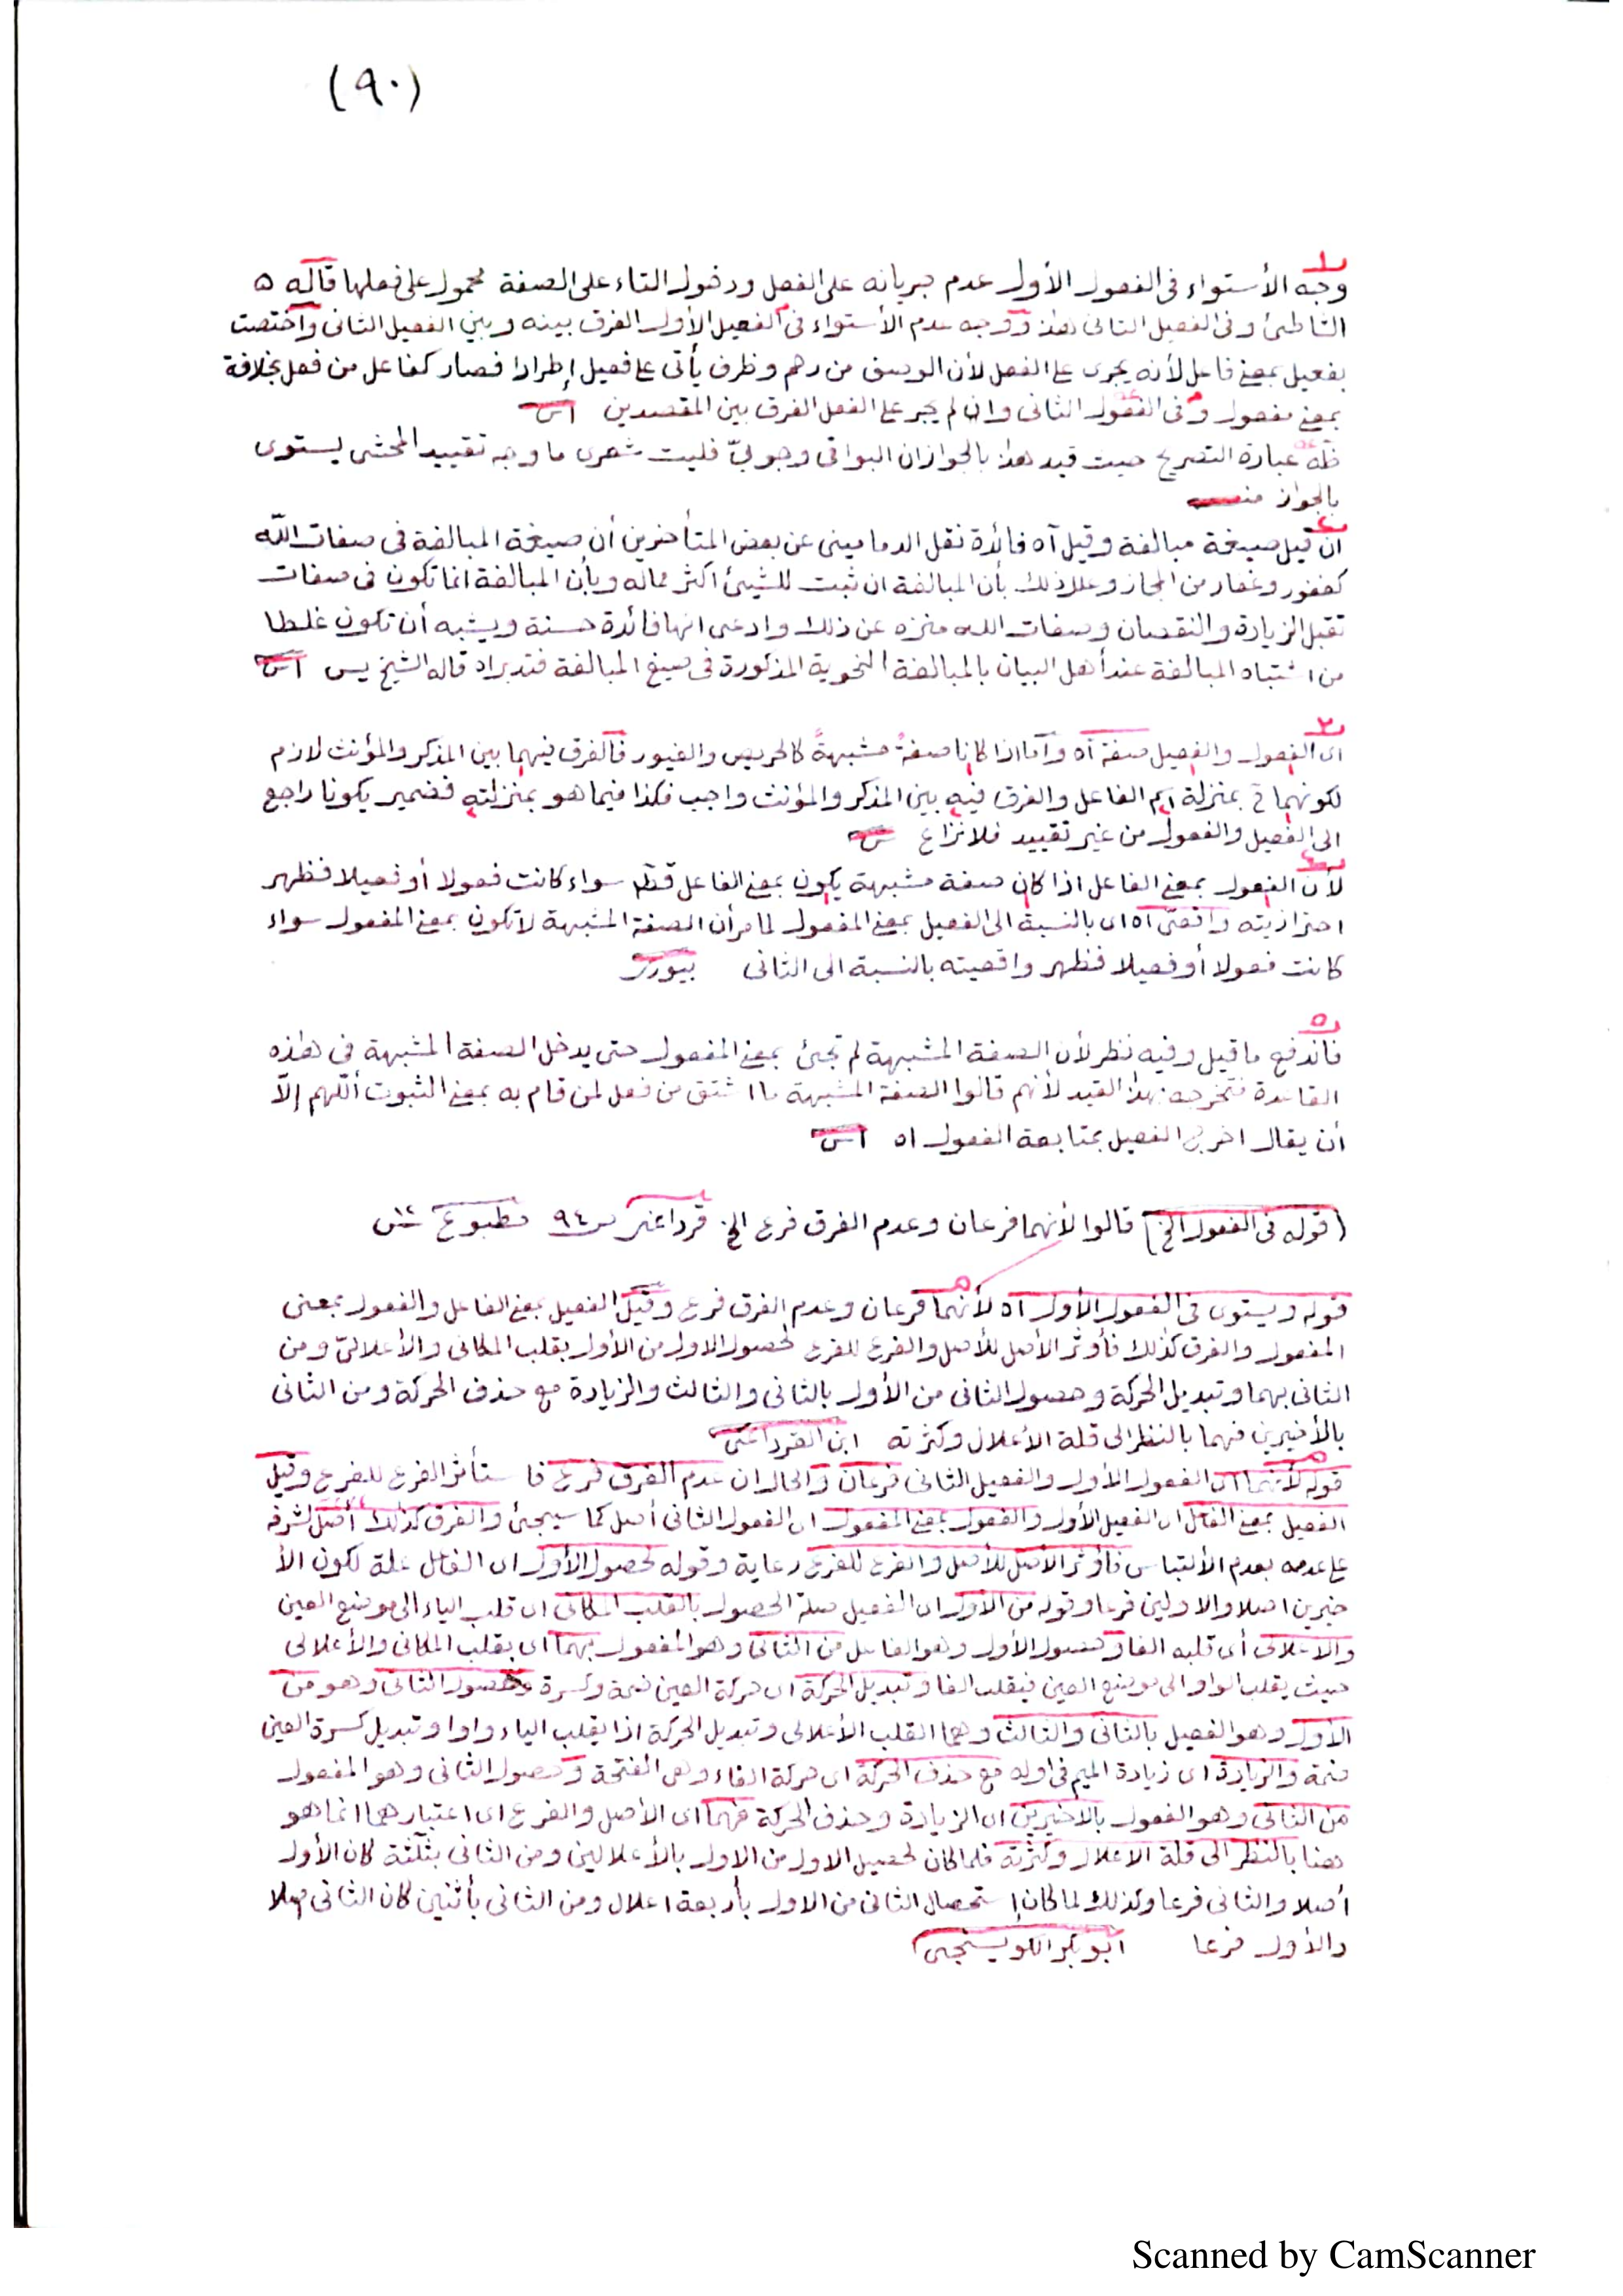 (٩٠)
١
وجه الأستواء فى الفعول الأول عدم جريانه على الفعل ودخول التاء على الصفة محمول على فعلها قاله ٥
الشاطبئ وفى الفعيل الثانى هذا ووجه عدم الأستواء فى الفعيل الأول الفرق بينه وبين الفعيل الثانى واختصت
بفعيل بمعنى فاعل لأنه يجرى على الفعل لأن الوصف من رحم وظرف يأتى على فعيل إطرادا فصار كفاعل من فعل بخلافة
بمعنى مفعول وفى الفعول الثانى وان لم يجر على الفعل الفرق بين المقصدين
عبارة التصريح حيث قيد هذا بالجواز ان البواقى وجوبىّ فليت شعرى ما وجه تقييد المحشى يستوى
بالجواز منه
٢
ان قيل صيغة مبالغة وقيل آه فائدة نقل الدمامينى عن بعض المتأخرين أن صيغة المبالغة فى صفات اللّه
كغفور وغفار من المجاز وعلل ذلك بأن المبالغة ان تثبت للشيئ اكثر مماله وبأن المبالغة انما تكون فى صفات
تقبل الزيادة والنقصان وصفات الله منزه عن ذلك وادعى انها فائدة حسنة ويشبه أن تكون غلطا
من اشتباه المبالغة عند أهل البيان بالمبالغة النحوية المذكورة فى صيغ المبالغة فتدبر اه قاله الشيخ يس
٣
اى الفعول والفعيل صفة آه وأما اذا كانا صفةً مشبهةً كالحريص والغيور فالفرق فيهما بين المذكر والمؤنث لازم
لكونهما ح بمنزلة اسم الفاعل والفرق فيه بين المذكر والمؤنث واجب فكذا فيما هو بمنزلته فضمير يكونا راجع
الى الفعيل والفعول من غير تقييد فلا نزاع
٤
لأن الفعول بمعنى الفاعل اذا كان صفة مشبهة يكون بمعنى الفاعل قطعا سواء كانت فعولا أو فعيلا فظهر
احترازيته واقعىّ اه اى بالنسبة الى الفعيل بمعنى المفعول لما مر أن الصفة المشبهة لا تكون بمعنى المفعول سواء
كانت فعولا أو فعيلا فظهر واقعيته بالنسبة الى الثانى
٥
فاندفع ما قيل وفيه نظر لأن الصفة المشبهة لم تجئ بمعنى المفعول حتى يدخل الصفة المشبهة فى هذه
القاعدة فتخرجه بهذا القيد لأنهم قالوا الصفة المشبهة ما اشتق من فعل لمن قام به بمعنى الثبوت أللّهم إلّا
أن يقال اخرج الفعيل بمتابعة الفعول اه
(قوله فى الفعول الخ) قالوا لأنهما فرعان وعدم الفرق فرع الخ قرداغى ص٩٤ مطبوع
قوله ويستوى فى الفعول الأول اه لأنهما فرعان وعدم الفرق فرع وقيل الفعيل بمعنى الفاعل والفعول بمعنى
المفعول والفرق كذلك فأوثر الأصل للأصل والفرع للفرع لحصول الاول من الأول بقلب المكانى والأعلالىّ ومن
الثانى بهما وتبديل الحركة وحصول الثانى من الأول بالثانى والثالث والزيادة مع حذف الحركة ومن الثانى
بالأخيرين فهما بالنظر الى قلة الأعلال وكثرته ابن القرداغى
قوله لأنهما اى الفعول الأول والفعيل الثانى فرعان والحال ان عدم الفرق فرع فاستأثر الفرع للفرع وقيل
الفعيل بمعنى الفاعل اى الفعيل الأول والفعول بمعنى المفعول اى الفعول الثانى أصل كما سيجئ والفرق كذلك أصل لشرفه
على عدمه بعدم الألتباس فأوثر الأصل للأصل والفرع للفرع رعاية وقوله لحصول الأول اى الفاعل علة لكون الأ
خيرين اصلا والاولين فرعا وقوله من الأول اى الفعيل صلة الحصول بالقلب المكانى اى قلب الياء الى موضع العين
والاعلالى أى قلبه الفا وحصول الأول وهو الفاعل من الثانى وهو المفعول بهما اى بقلب المكانى والأعلالى
حيث يقلب الواو الى موضع العين فيقلب الفا وتبديل الحركة اى حركة العين ضمة وكسرة وحصول الثانى وهو من
الأول وهو الفعيل بالثانى والثالث وهما القلب الأعلالى وتبديل الحركة اذا يقلب الياء واوا وتبديل كسرة العين
ضمة والزيادة اى زيادة الميم فى اوله مع حذف الحركة اى حركة الفاء وهى الفتحة وحصول الثانى وهو المفعول
من الثانى وهو الفعول بالاخيرين اى الزيادة وحذف الحركة فهما اى الأصل والفرع اى اعتبارهما انما هو
هنا بالنظر الى قلة الاعلال وكثرته فلما كان تحصيل الاول من الاول بالأعلالين ومن الثانى بثلثة كان الأول
أصلا والثانى فرعا وكذلك لما كان إستحصال الثانى من الاول بأربعة اعلال ومن الثانى بأثنين كان الثانى اصلا
والأول فرعا ابو بكر الكويسنجى
Scanned by CamScanner